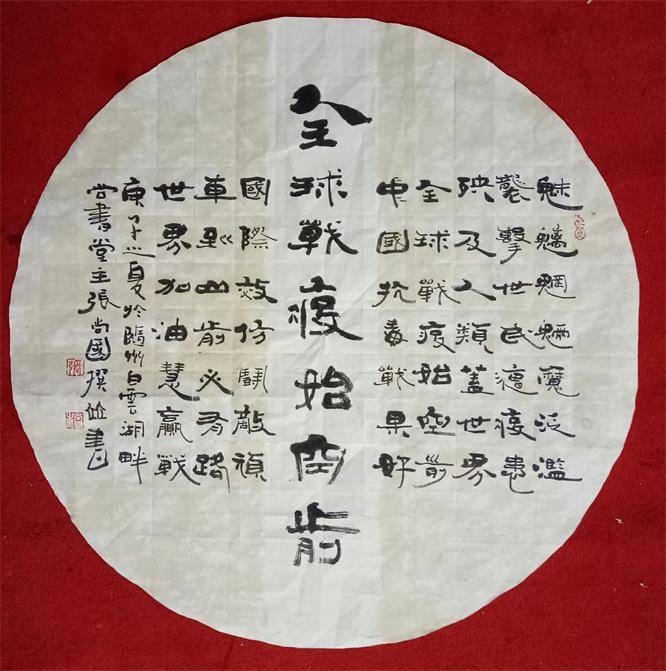 魅魑魍魎魔泛濫
襲擊世民遭疫患
殃及人類蓋世界
全球戰疫始空前
中國抗毒戰果好
全球戰疫始空前
國際效仿鬭敵頑
車到山前必有路
世界加油慧贏戰
庚子之夏於隨州白雲湖畔
尚書堂主張尚國撰並書